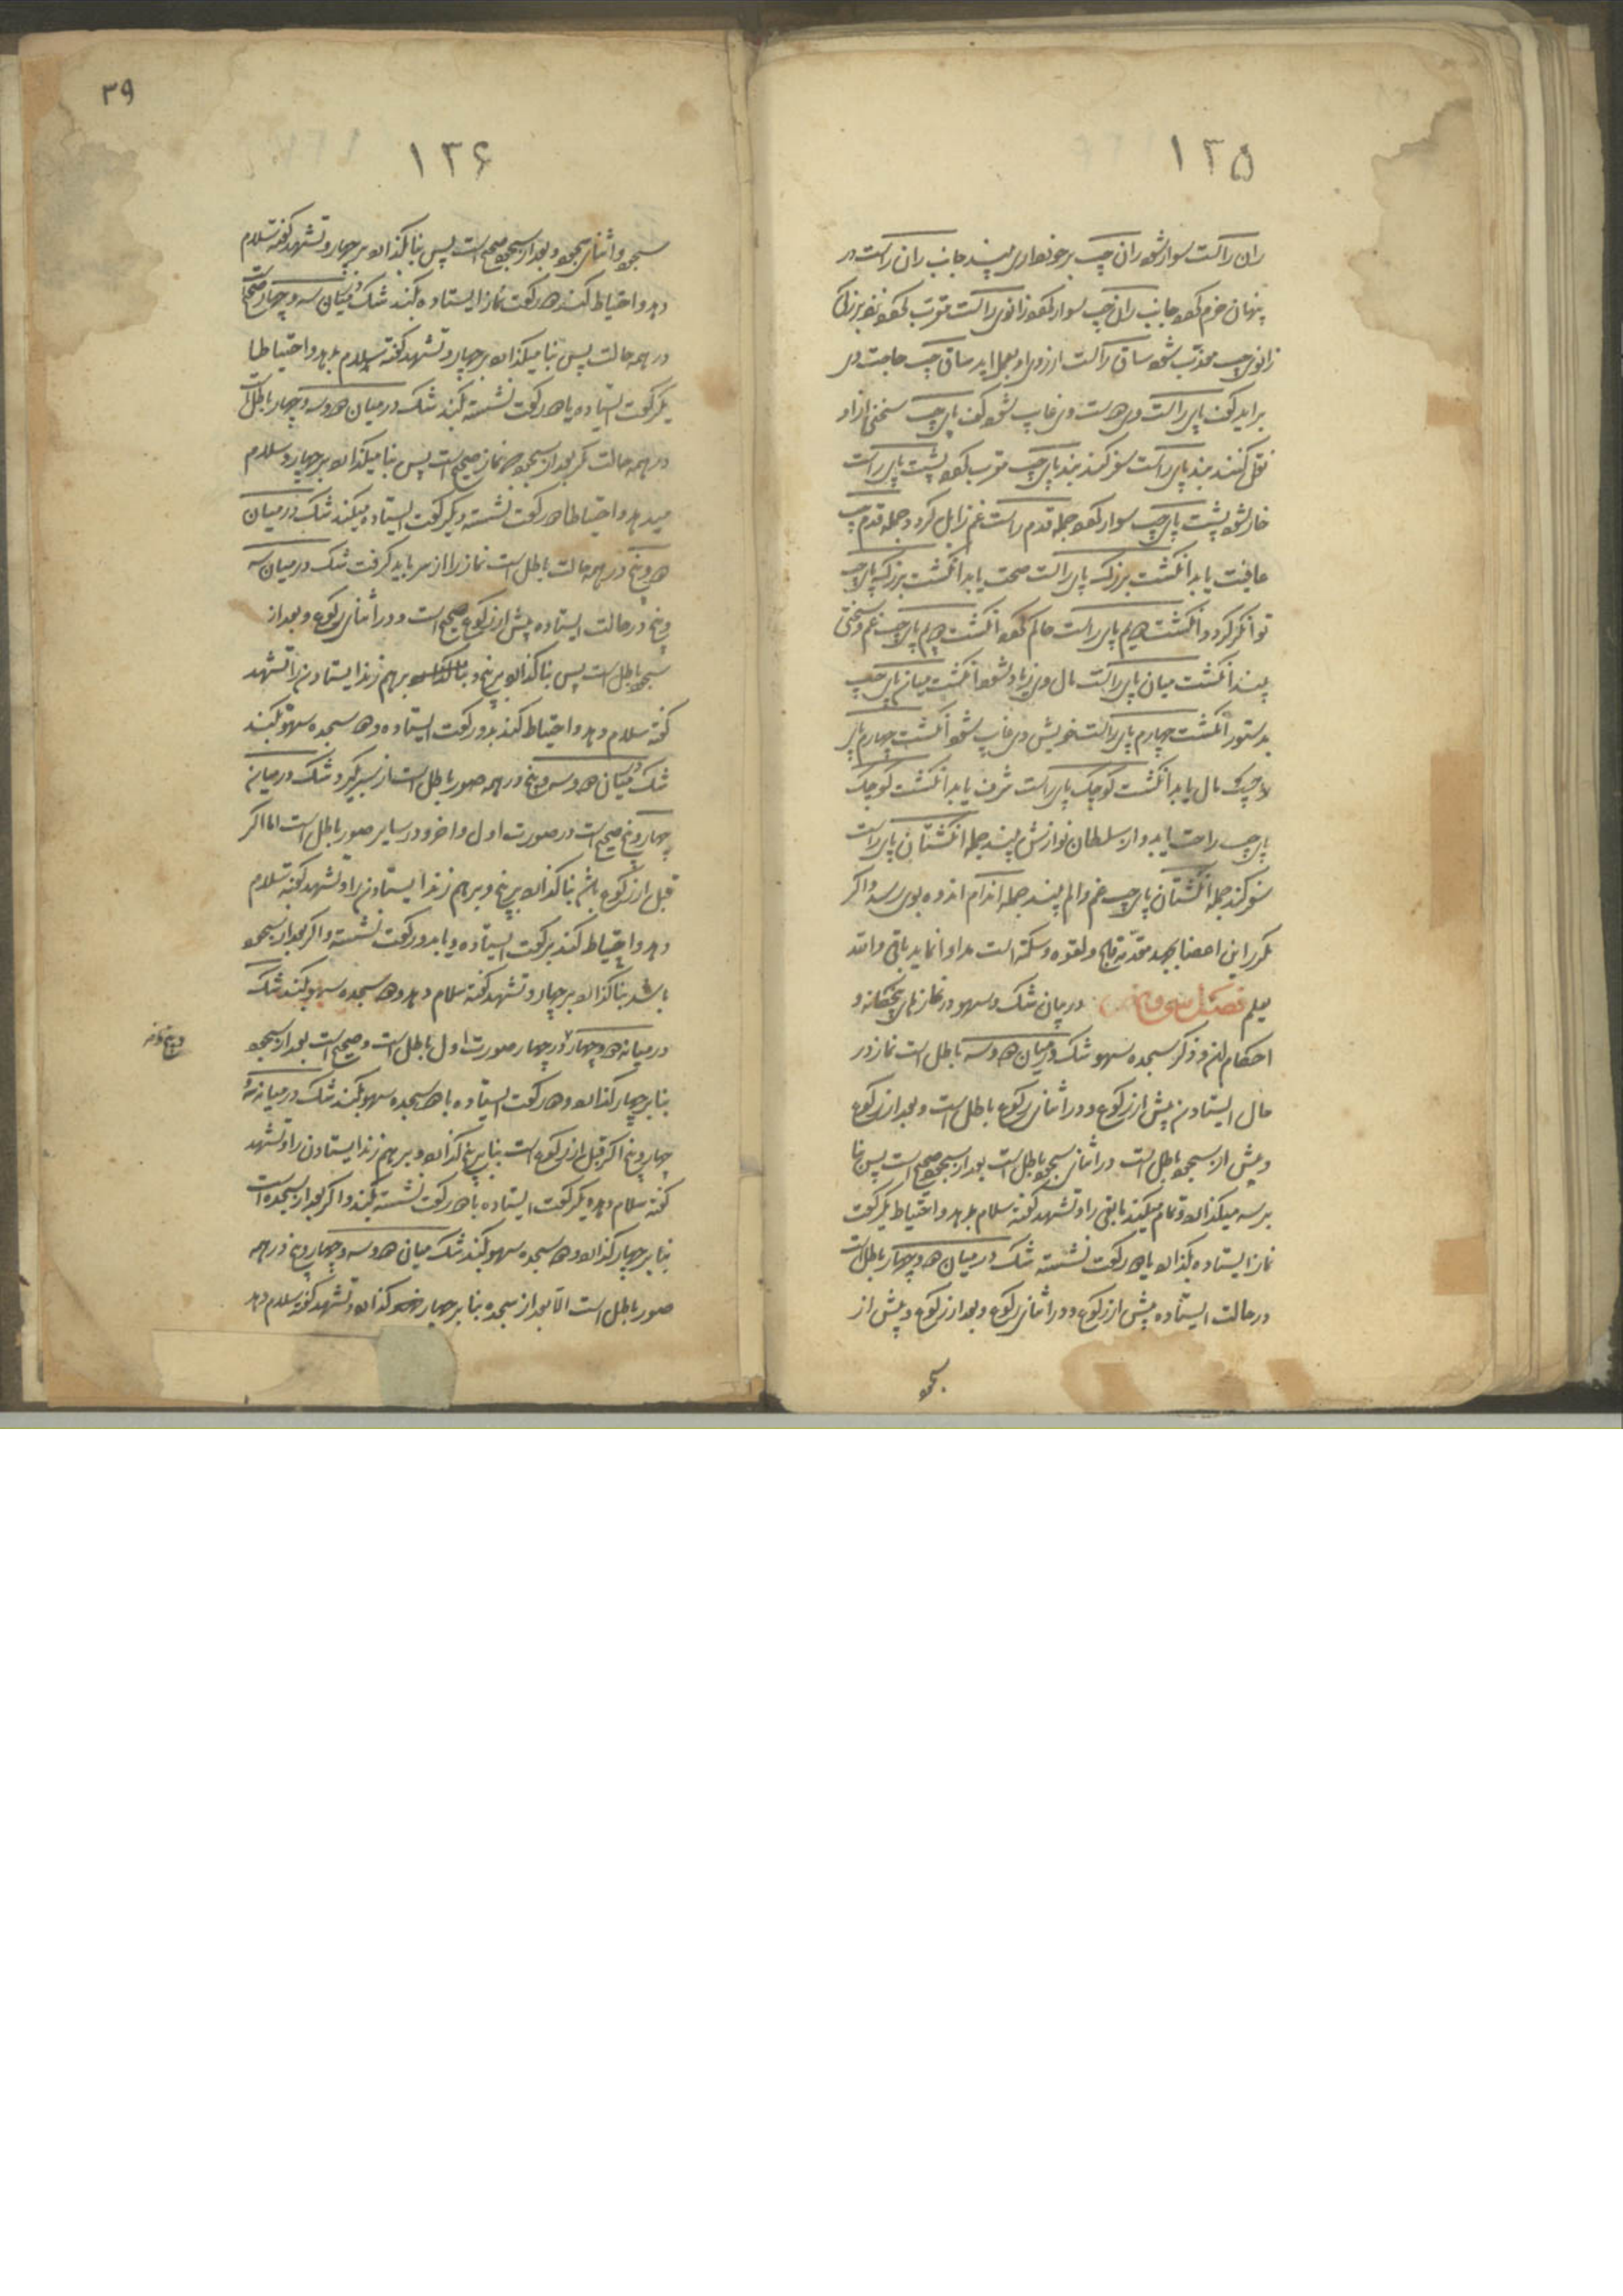 ۱۳۵
ران راست سوار شود ران چپ برخورداری بیند جانب ران راست در
پنهان خرم شود جانب ران چپ سوار شود زانوی راست مقرب شود نزد بزرگان
زانوی چپ مقرب شود ساق راست ارزوی او بعمل اید ساق چپ حاجت وی
براید کف پای راست وی هست وی غایب شود کف پای چپ سخنی ازاو
نقل کنند بند پای راست سفر کند بند پای چپ مقرب شود پشت پای راست
پشت پای چپ سوار شود جمله قدم راست غم زایل کرد و جمله قدم چپ
عافیت یابد انگشت بزرگ پای راست صحت یابد انگشت بزرگ پای چپ
توانگر کردد انگشت دویم پای راست حاکم شود انگشت دویم پای چپ غم و سختی
بیند انگشت میان پای راست مال وی زیاد شود انگشت میان پای چپ
بدستور انگشت چهارم پای راست خویش وی غایب شود انگشت چهارم پای
چپ مال یابد انگشت کوچک پای راست شرف یابد انگشت کوچک
پای چپ راحت یابد و از سلطان نوازش بیند جمله انگشتان پای راست
سفر کند جمله انگشتان پای چپ غم و الم بیند جمله اندام اندوه بوی رسد و اگر
مکرر این اعضا بجهد مقدمه فلج و لقوه و سکته است مداوا نماید باقی والله
یعلم فصل سی و پنجم در بیان شک و سهو در نمازهای پنجکانه و
احکام ان و ذکر سجده سهو شک در میان دو و سه باطل است نماز در
حال ایستادن پیش از رکوع و در اثنای رکوع باطل است و بعد از رکوع
و پیش از سجود باطل است در اثنای سجود باطل است بعد از سجود صحیح است پس بنا
بر سه میگذارد و تمام میکند باقی را و تشهد گفته سلام بدهد و احتیاط یکرکعت
نماز ایستاده بگذارد یا دو رکعت نشسته شک در میان دو و چهار باطل است
در حالت ایستاده پیش از رکوع و در اثنای رکوع و بعد از رکوع و پیش از
سجود
۳۹
۱۳۶
سجود و اثنای سجود و بعد از سجود صحیح است پس بنا گذارد بر چهار و تشهد گفته سلام
دهد و احتیاط کند دو رکعت نماز ایستاده بکند شک در میان سه و چهار صحیح است
در همه حالت پس بنا میگذارد بر چهار و تشهد گفته سلام بدهد و احتیاط با
یکرکعت ایستاده یا دو رکعت نشسته بکند شک در میان دو و سه و چهار باطل است
در همه حالت مگر بعد از سجود نماز صحیح است پس بنا میگذارد بر چهار و سلام
میدهد و احتیاط با دو رکعت نشسته و یکرکعت ایستاده میکند شک در میان
دو و پنج در همه حالت باطل است نماز را از سر باید گرفت شک در میان سه
و پنج در حالت ایستاده پیش از رکوع صحیح است و در اثنای رکوع و بعد از
سجود باطل است پس بنا گذارد بر پنج و بر هم زند ایستادن را و تشهد
گفته سلام دهد و احتیاط کند بدو رکعت ایستاده و دو سجده سهو بکند
شک در میان دو و سه و پنج در همه صور باطل است از سر بگیرد شک در میان
چهار و پنج صحیح است در صورت اول و اخر و در سایر صور باطل است اما اگر
قبل از رکوع باشد بنا گذارد بر پنج و بر هم زند ایستادن را و تشهد گفته سلام
دهد و احتیاط کند بر رکعت ایستاده و یا بدو رکعت نشسته و اگر بعد از سجود
باشد بنا گذارد بر چهار و تشهد گفته سلام دهد و دو سجده سهو بکند شک
در میانه دو و چهار در چهار صورت اول باطل است و صحیح است بعد از سجود
بنا بر چهار گذارد و دو رکعت ایستاده با دو سجده سهو بکند شک در میانه سه و
چهار و پنج اگر قبل از رکوع است بنا بر پنج گذارد و بر هم زند ایستادن را و تشهد
گفته سلام دهد و یکرکعت ایستاده یا دو رکعت نشسته بکند و اگر بعد از سجده است
بنا بر چهار گذارد و دو سجده سهو بکند شک میان دو و سه و چهار و پنج در همه
صور باطل است الا بعد از سجده بنا بر چهار گذارد و تشهد گفته سلام دهد